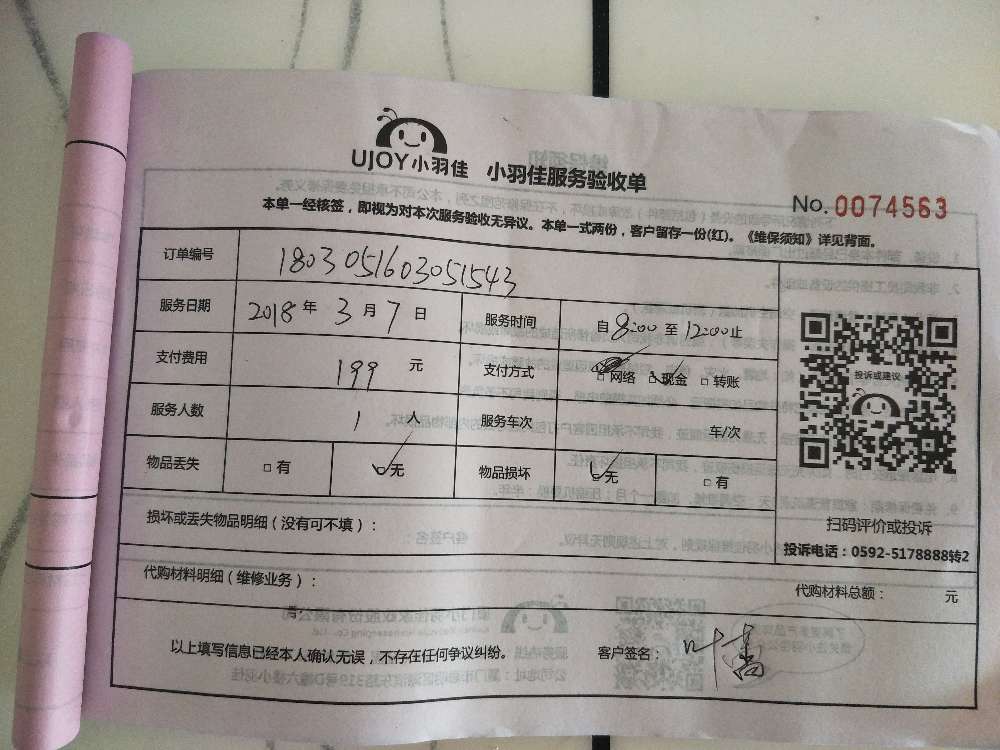 UJOY小羽佳 小羽佳服务验收单
No. 0074563
本单一经核签，即视为对本次服务验收无异议。本单一式两份，客户留存一份(红)。《维保须知》详见背面。
订单编号 1803051603051543
服务日期 2018年3月7日 服务时间 自8:00至12:00止
支付费用 199元 支付方式 □网络 □现金 □转账
服务人数 1人 服务车次 车/次
物品丢失 □有 □无 物品损坏 □无 □有
投诉或建议
扫码评价或投诉
投诉电话：0592-5178888转2
损坏或丢失物品明细（没有可不填）：
代购材料明细（维修业务）：
代购材料总额： 元
以上填写信息已经本人确认无误，不存在任何争议纠纷。 客户签名：叶